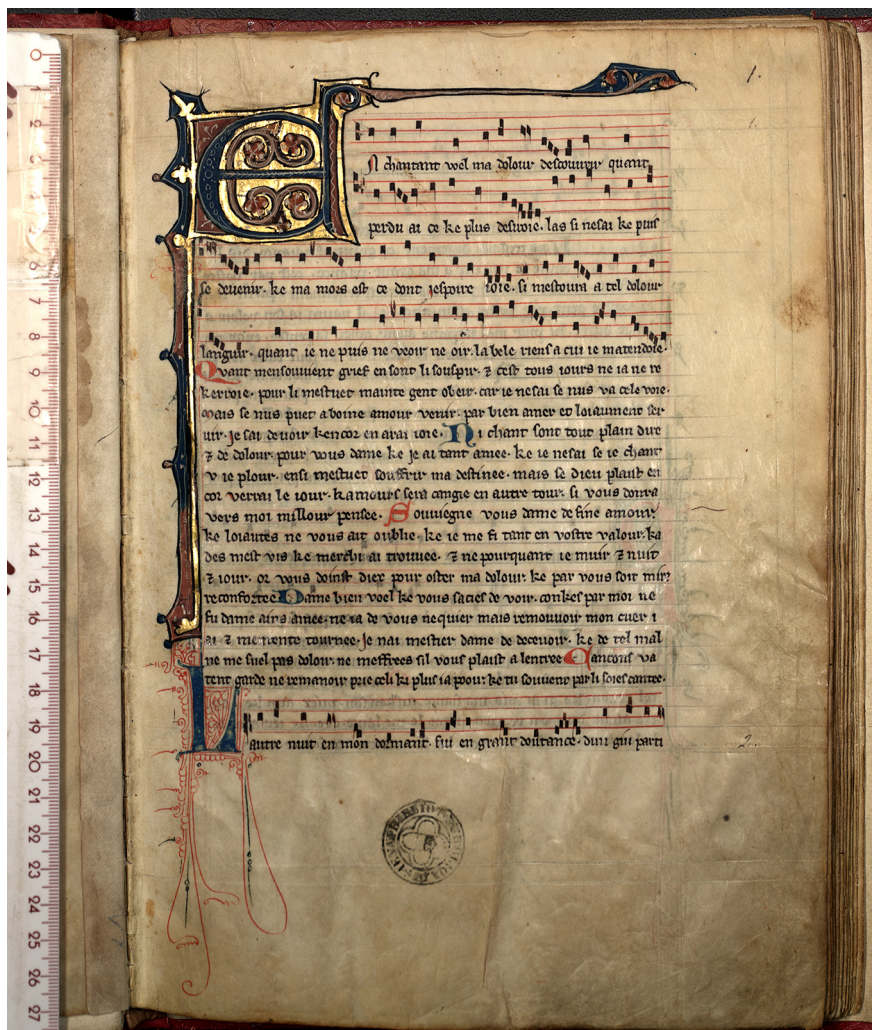 1.
EN chantant voel ma dolour descouurir quant
perdu ai ce ke plus desiroie. las si ne sai ke puis
se deuenir. ke ma mors est ce dont iespoire ioie. si mestoura a tel dolour
languir. quant ie ne puis ne veoir ne oir. la bele riens a cui ie matendoie.
Quant men souuient grief en sont li souspir. ⁊ cest tous iours ne ia ne re
kerroie. pour li mestuet mainte gent obeir. car ie ne sai se nus va cele voie.
Mais se nus puet a boine amour venir. par bien amer et loiaument ser
uir. Je sai de voir kencor en arai ioie. Ni chant sont tout plain dire
⁊ de dolour. pour vous dame ke je ai tant amee. ke ie ne sai se ie chant
v ie plour. ensi mestuet souffrir ma destinee. mais se dieu plaist en
cor verrai le iour. kamours sera cangie en autre tour. si vous donra
vers moi millour pensee. Souuiegne vous dame de fine amour.
ke loiautes ne vous ait oublie. ke ie me fi tant en vostre valour. ka
des mest vis ke merchi ai trouuee. ⁊ ne pourquant ie muir ⁊ nuit
⁊ iour. or vous doinst diex pour oster ma dolour. ke par vous soit
reconfortee. Dame bien voel ke vous sacies de voir. conkes par moi ne
fu dame ains amee. ne ia de vous ne quier mais remouuoir mon cuer i
ai ⁊ me tournee. Je nai mestier dame de deceuoir. ke de tel mal
ne me suel pas doloir. ne meffrees sil vous plaist a lentree. Cancons va
tent garde ne remanoir prie celi ki plus ia pooir. ke tu souuent par li soies cantee.
2.
Lautre nuit en mon dormant. fui en grant doutance. dun giu parti